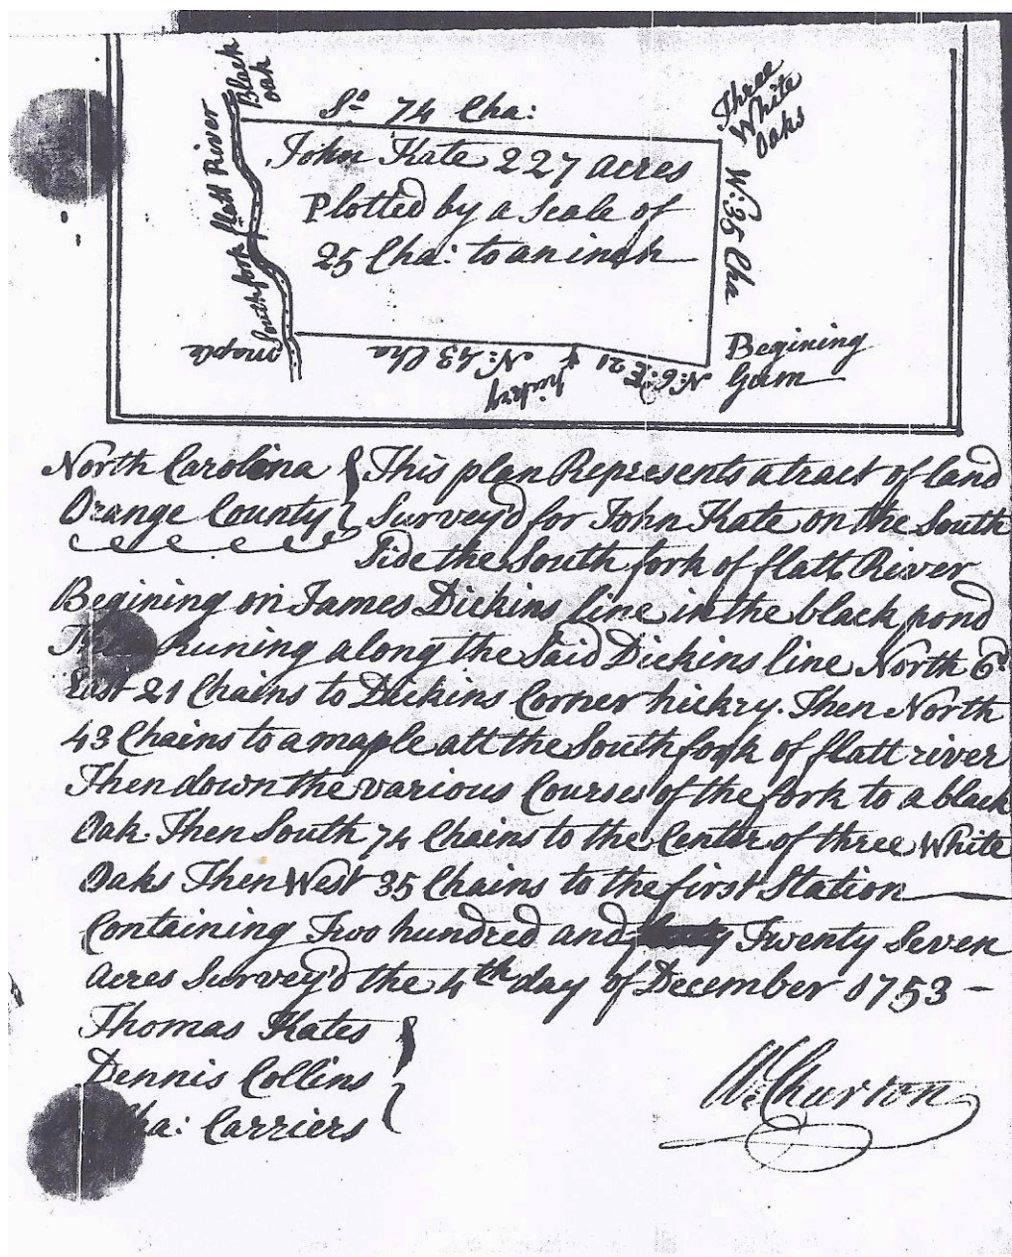 Black
oak
So 74 Cha:
Three
White
Oaks
John Kate 227 acres
Plotted by a Scale of
25 Cha: to an inch
South fork flatt River
W: 35 Cha
maple
N: 43 Cha
hickry
N: 6: E 21
Begining
Gum
North Carolina { This plan Represents a tract of land
Orange County { Survey'd for John Kate on the South
Side the South fork of flatt River
Begining on James Dickins line in the black pond
Then Runing along the Said Dickins line North 6d
East 21 Chains to Dickins Corner hickry. Then North
43 Chains to a maple att the South fork of flatt river
Then down the various Courses of the fork to a black
Oak. Then South 74 Chains to the Center of three White
Oaks Then West 35 Chains to the first Station
Containing Two hundred and Twenty Seven
acres Survey'd the 4th day of December 1753 -
Thomas Kates
Dennis Collins
Cha: Carriers
W: Churton